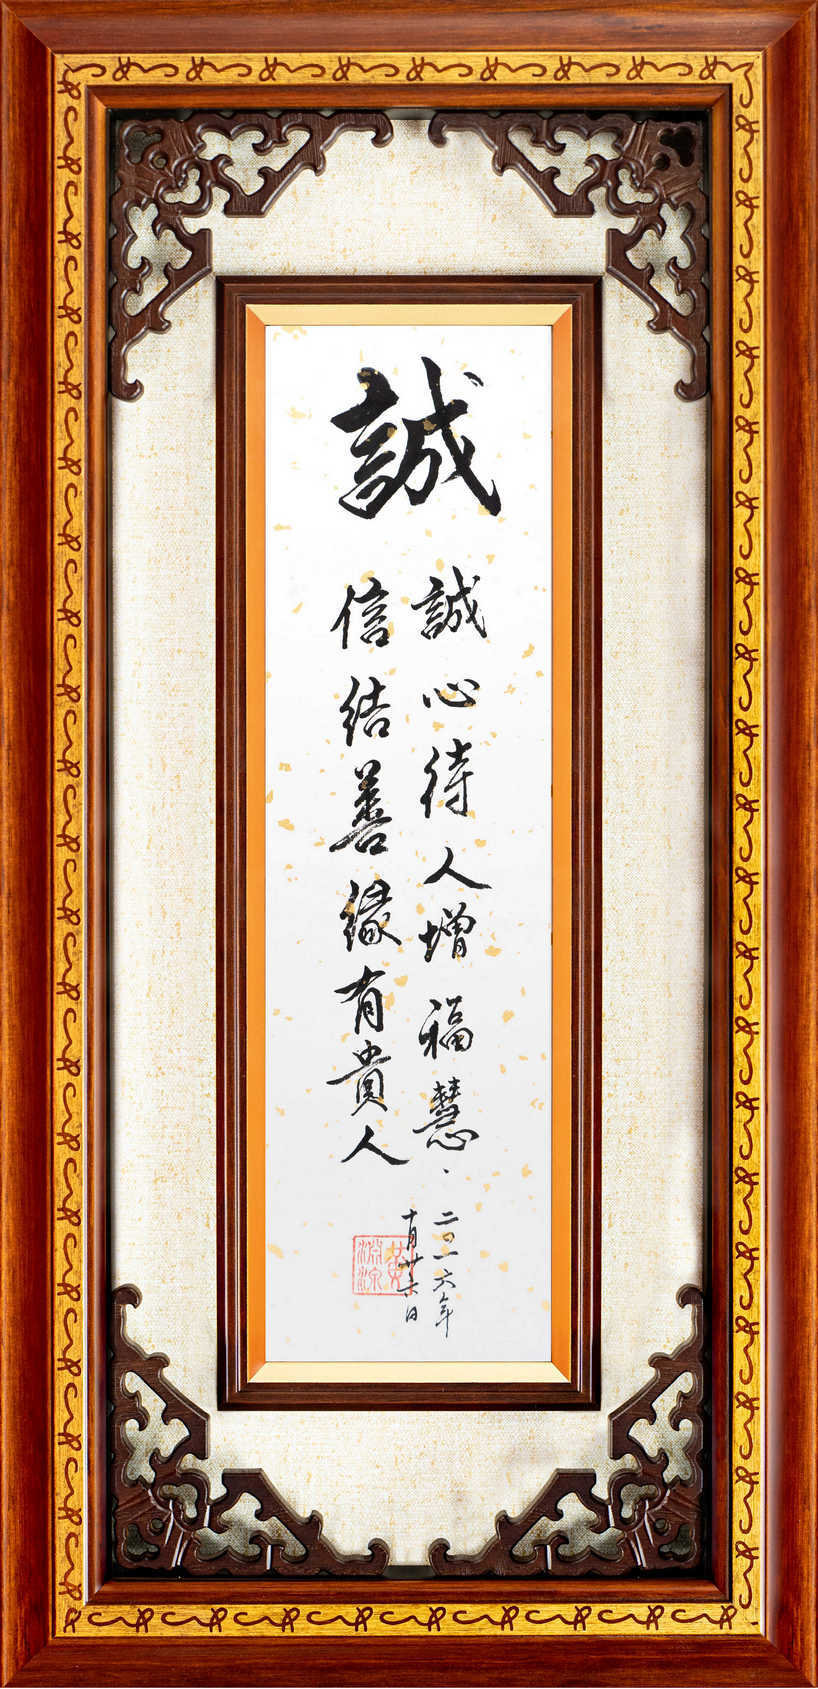 誠
誠心待人增福慧
信結善緣有貴人
二〇一六年
十月廿六日